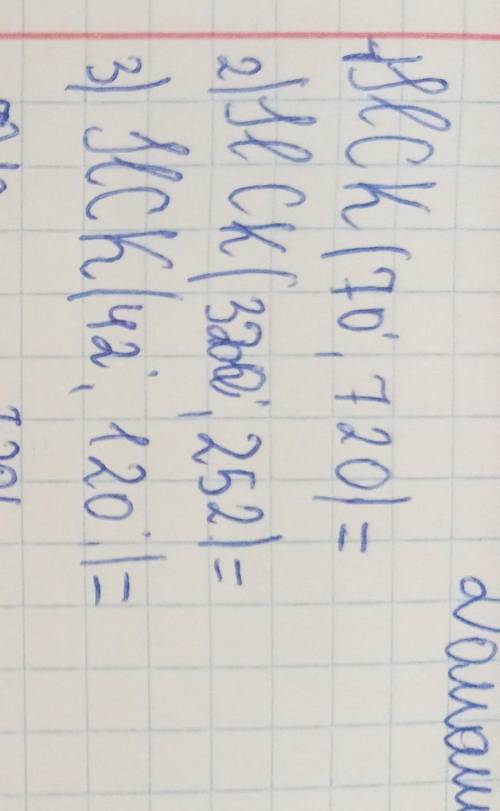 1) НСК (70, 720) =
2) НСК ( , 252) =
3) НСК (42, 120) =